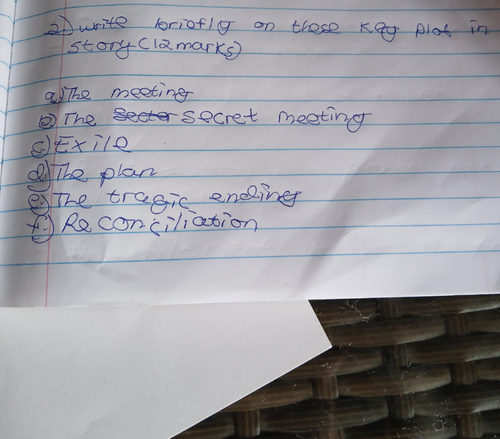 2) write briefly on these key plot in
story (12 marks)
a) The meeting
b) The secter secret meeting
c) Exile
d) The plan
e) The tragic ending
f) Reconciliation